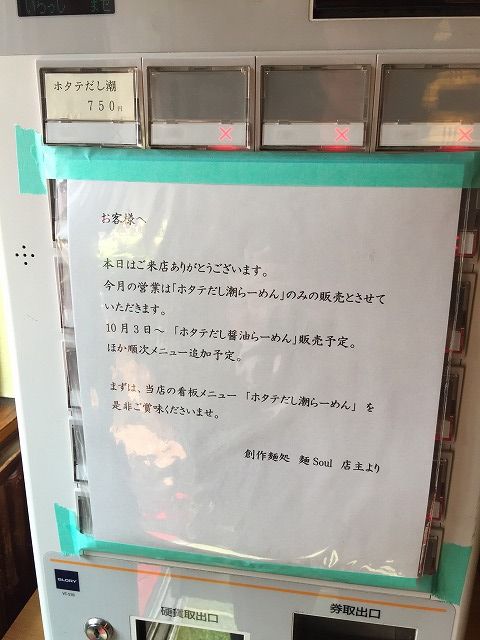 いらっしゃいませ
ホタテだし潮
750円
お客様へ
本日はご来店ありがとうございます。
今月の営業は「ホタテだし潮らーめん」のみの販売とさせて
いただきます。
10月3日～「ホタテだし醤油らーめん」販売予定。
ほか順次メニュー追加予定。
まずは、当店の看板メニュー「ホタテだし潮らーめん」を
是非ご賞味くださいませ。
創作麺処 麺Soul 店主より
GLORY
硬貨取出口
券取出口